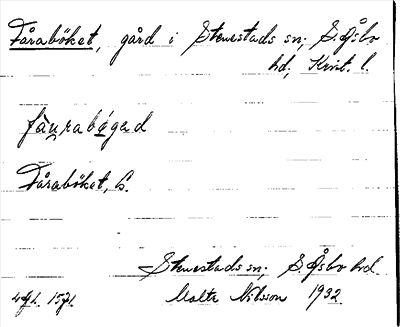 Fåraböket, gård i Stenestads sn; S. Åsbo
hd; Krist. l.
fàu̲rabǿgad
Fåraböket, G.
Stenestads sn; S. Åsbo hd.
Malte Nilsson 1932.